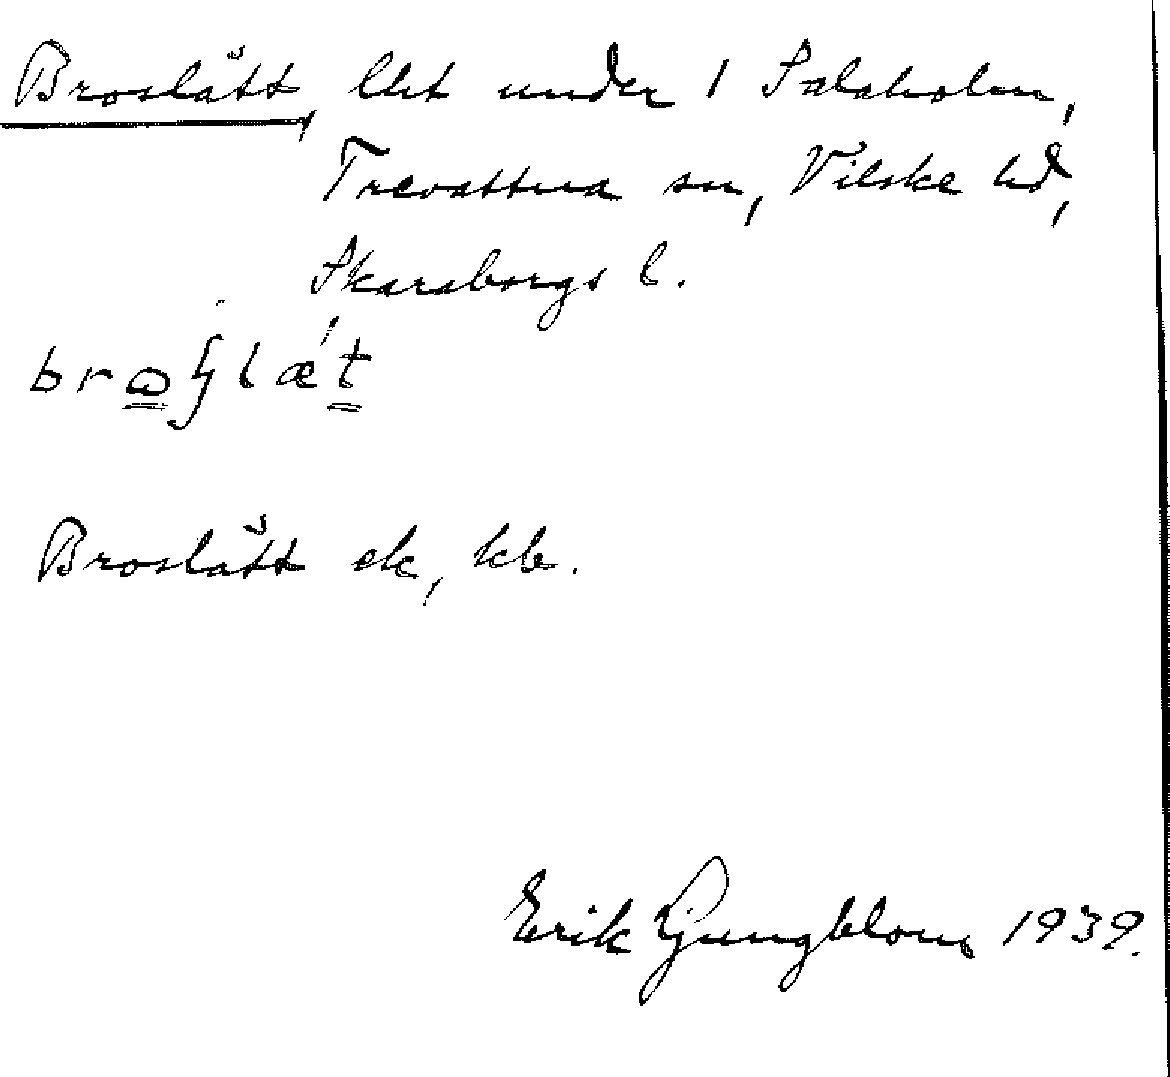 Broslätt, lht under 1 Salaholm,
Trevattna sn, Vilske hd,
Skaraborgs l.
Broslätt ek, kb.
Erik Ljungblom 1939.